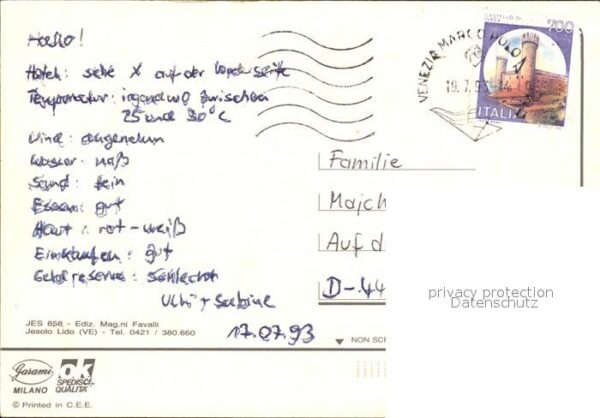 Hallo!
Hotel: siehe X auf der Vorderseite
Temperatur: irgendwo zwischen
25 und 30°C
Wind: angenehm
Wasser: naß
Sand: fein
Essen: gut
Haut: rot-weiß
Einkaufen: gut
Geldreserve: schlecht
Ulli + Sabine
17.07.93
JES 858 - Ediz. Mag.ni Favalli
Jesolo Lido (VE) - Tel. 0421 / 380.660
Garami
MILANO
ok
SPEDISCI
QUALITÀ
© Printed in C.E.E.
CASTELLO DI
700
ITALIA
VENEZIA MARCO POLO
19.7.93-14
Familie
Majch
Auf d
D-44
privacy protection
Datenschutz
NON SC